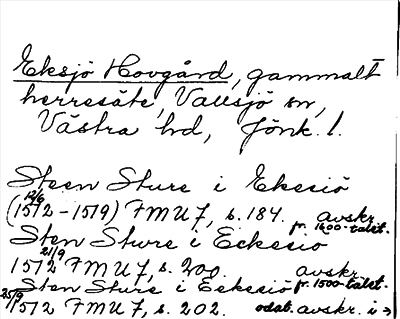 Eksjö Hovgård, gammalt
herresäte, Vallsjö sn,
Västra hd, Jönk. l.
Steen Sture i Eksiö
12/6
(1512-1519) FMU 7, s. 184. avskr.
fr. 1600-talet.
Sten Sture i Eckesiö
21/9
1512 FMU 7, s. 200. avskr.
fr. 1500-talet.
Sten Sture i Eekesiö
25/9
1512 FMU 7, s. 202. odat. avskr. i →